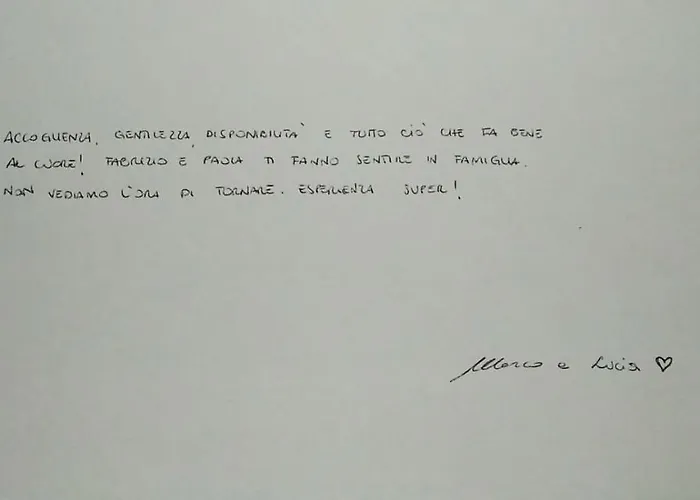 ACCOGLIENZA, GENTILEZZA, DISPONIBILITÀ E TUTTO CIÒ CHE FA BENE
AL CUORE! FABRIZIO E PAOLA TI FANNO SENTIRE IN FAMIGLIA.
NON VEDIAMO L'ORA DI TORNARE. ESPERIENZA SUPER!
Marco e Lucia ♡